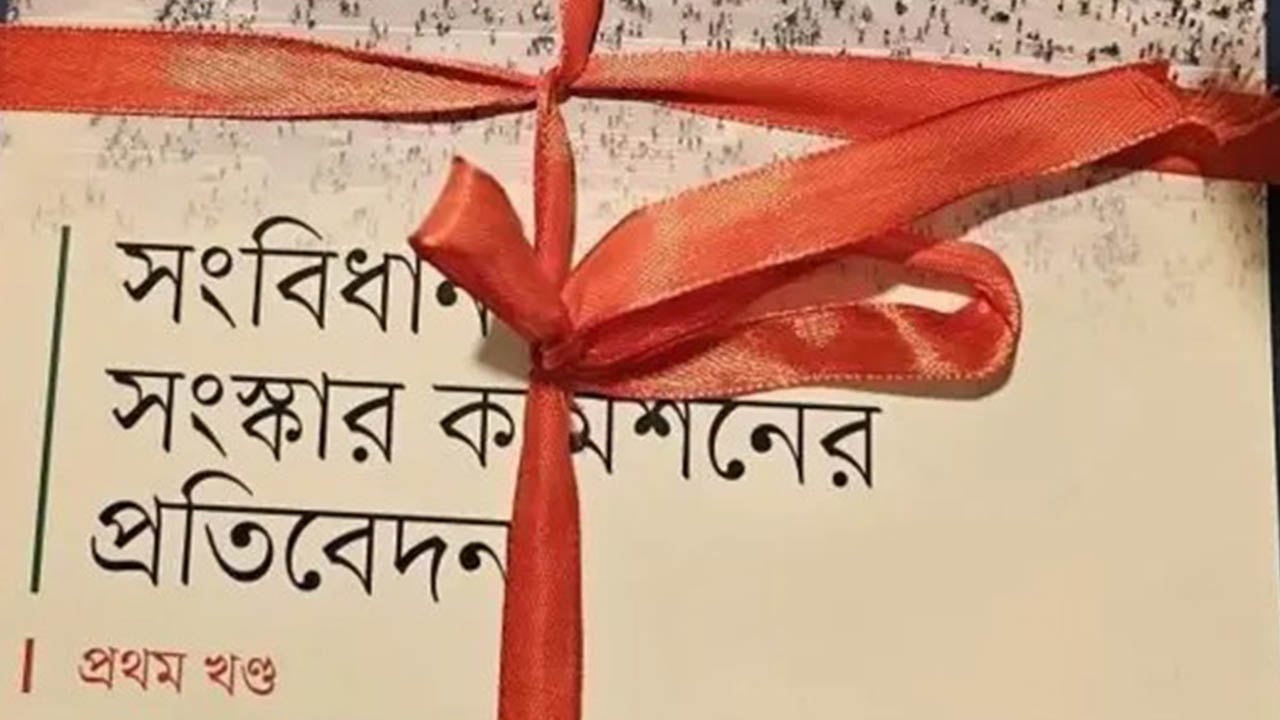 সংবিধান
সংস্কার কমিশনের
প্রতিবেদন
প্রথম খণ্ড